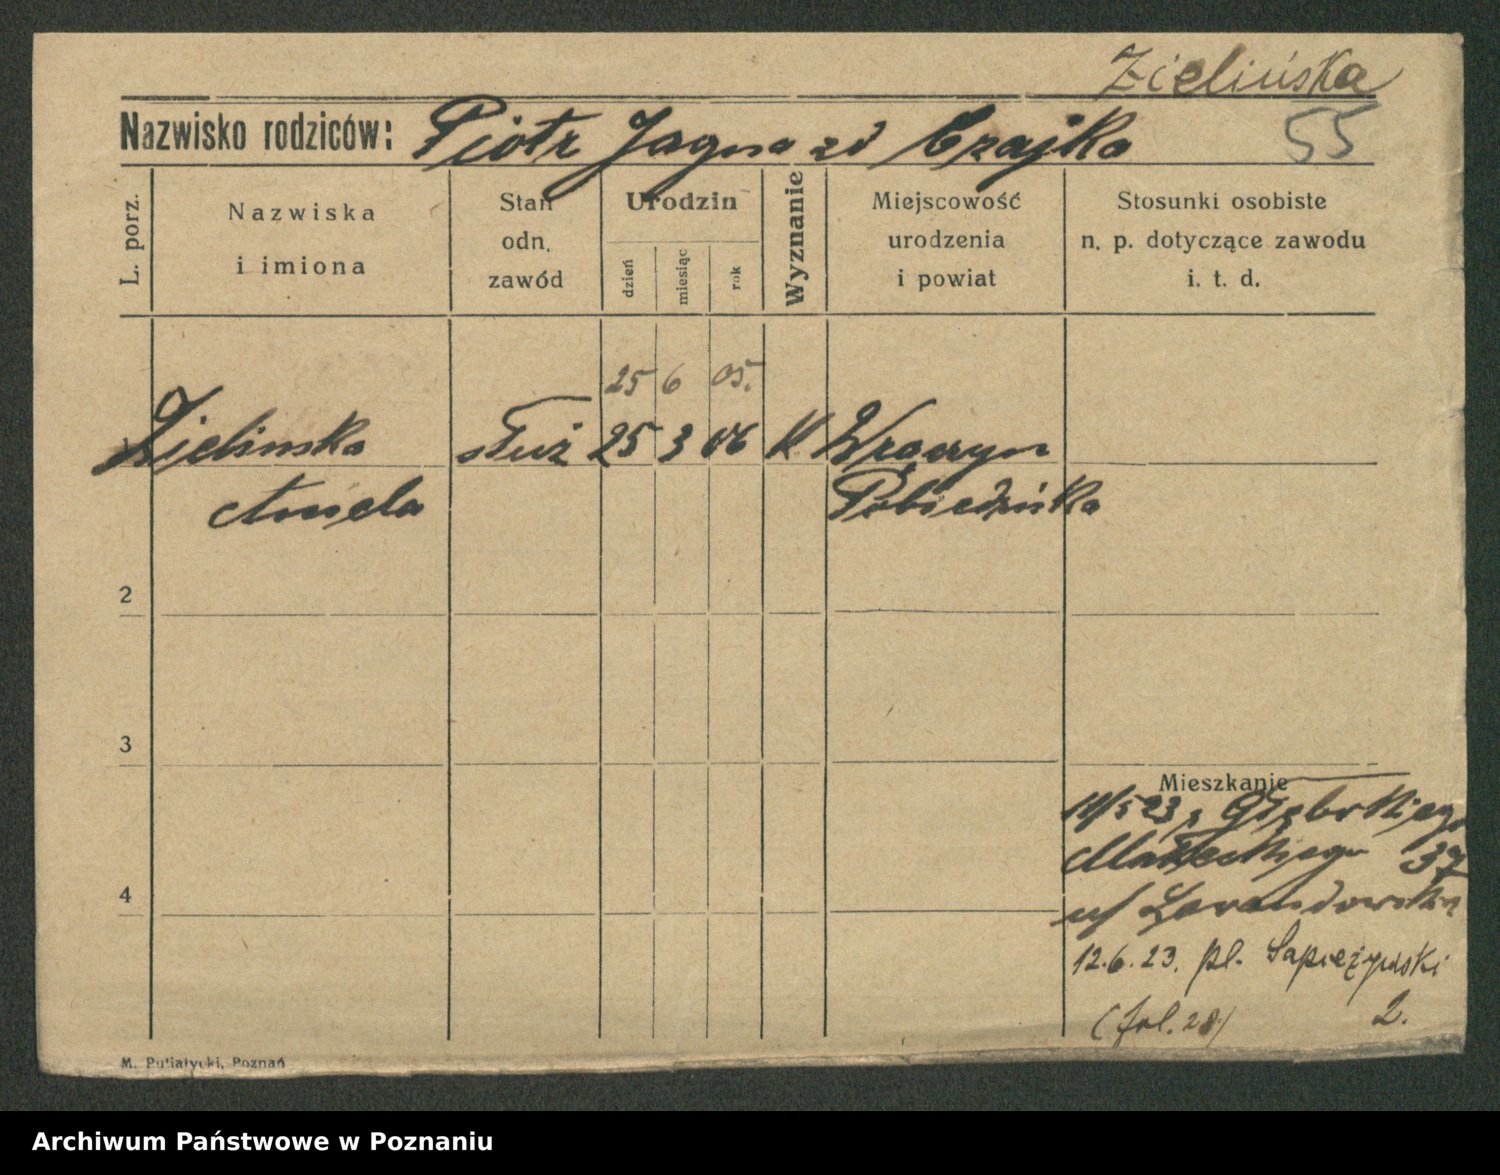 Zielińska
Nazwisko rodziców: Piotr Jagna zd Czajka 55
L. porz.
Nazwiska
i imiona
Stan
odn.
zawód
Urodzin
dzień
miesiąc
rok
Wyznanie
Miejscowość
urodzenia
i powiat
Stosunki osobiste
n. p. dotyczące zawodu
i. t. d.
25 6 05.
Zielinska służ 25 3 06 K Wronczyn
Aniela Pobiedziska
2
3
Mieszkanie
14/5 23 z
Małeckiego 37
4
u/ Lewandowskiej
12.6.23. pl. Sapieżyński
(fol. 28) 2.
M. Putiatycki, Poznań
Archiwum Państwowe w Poznaniu